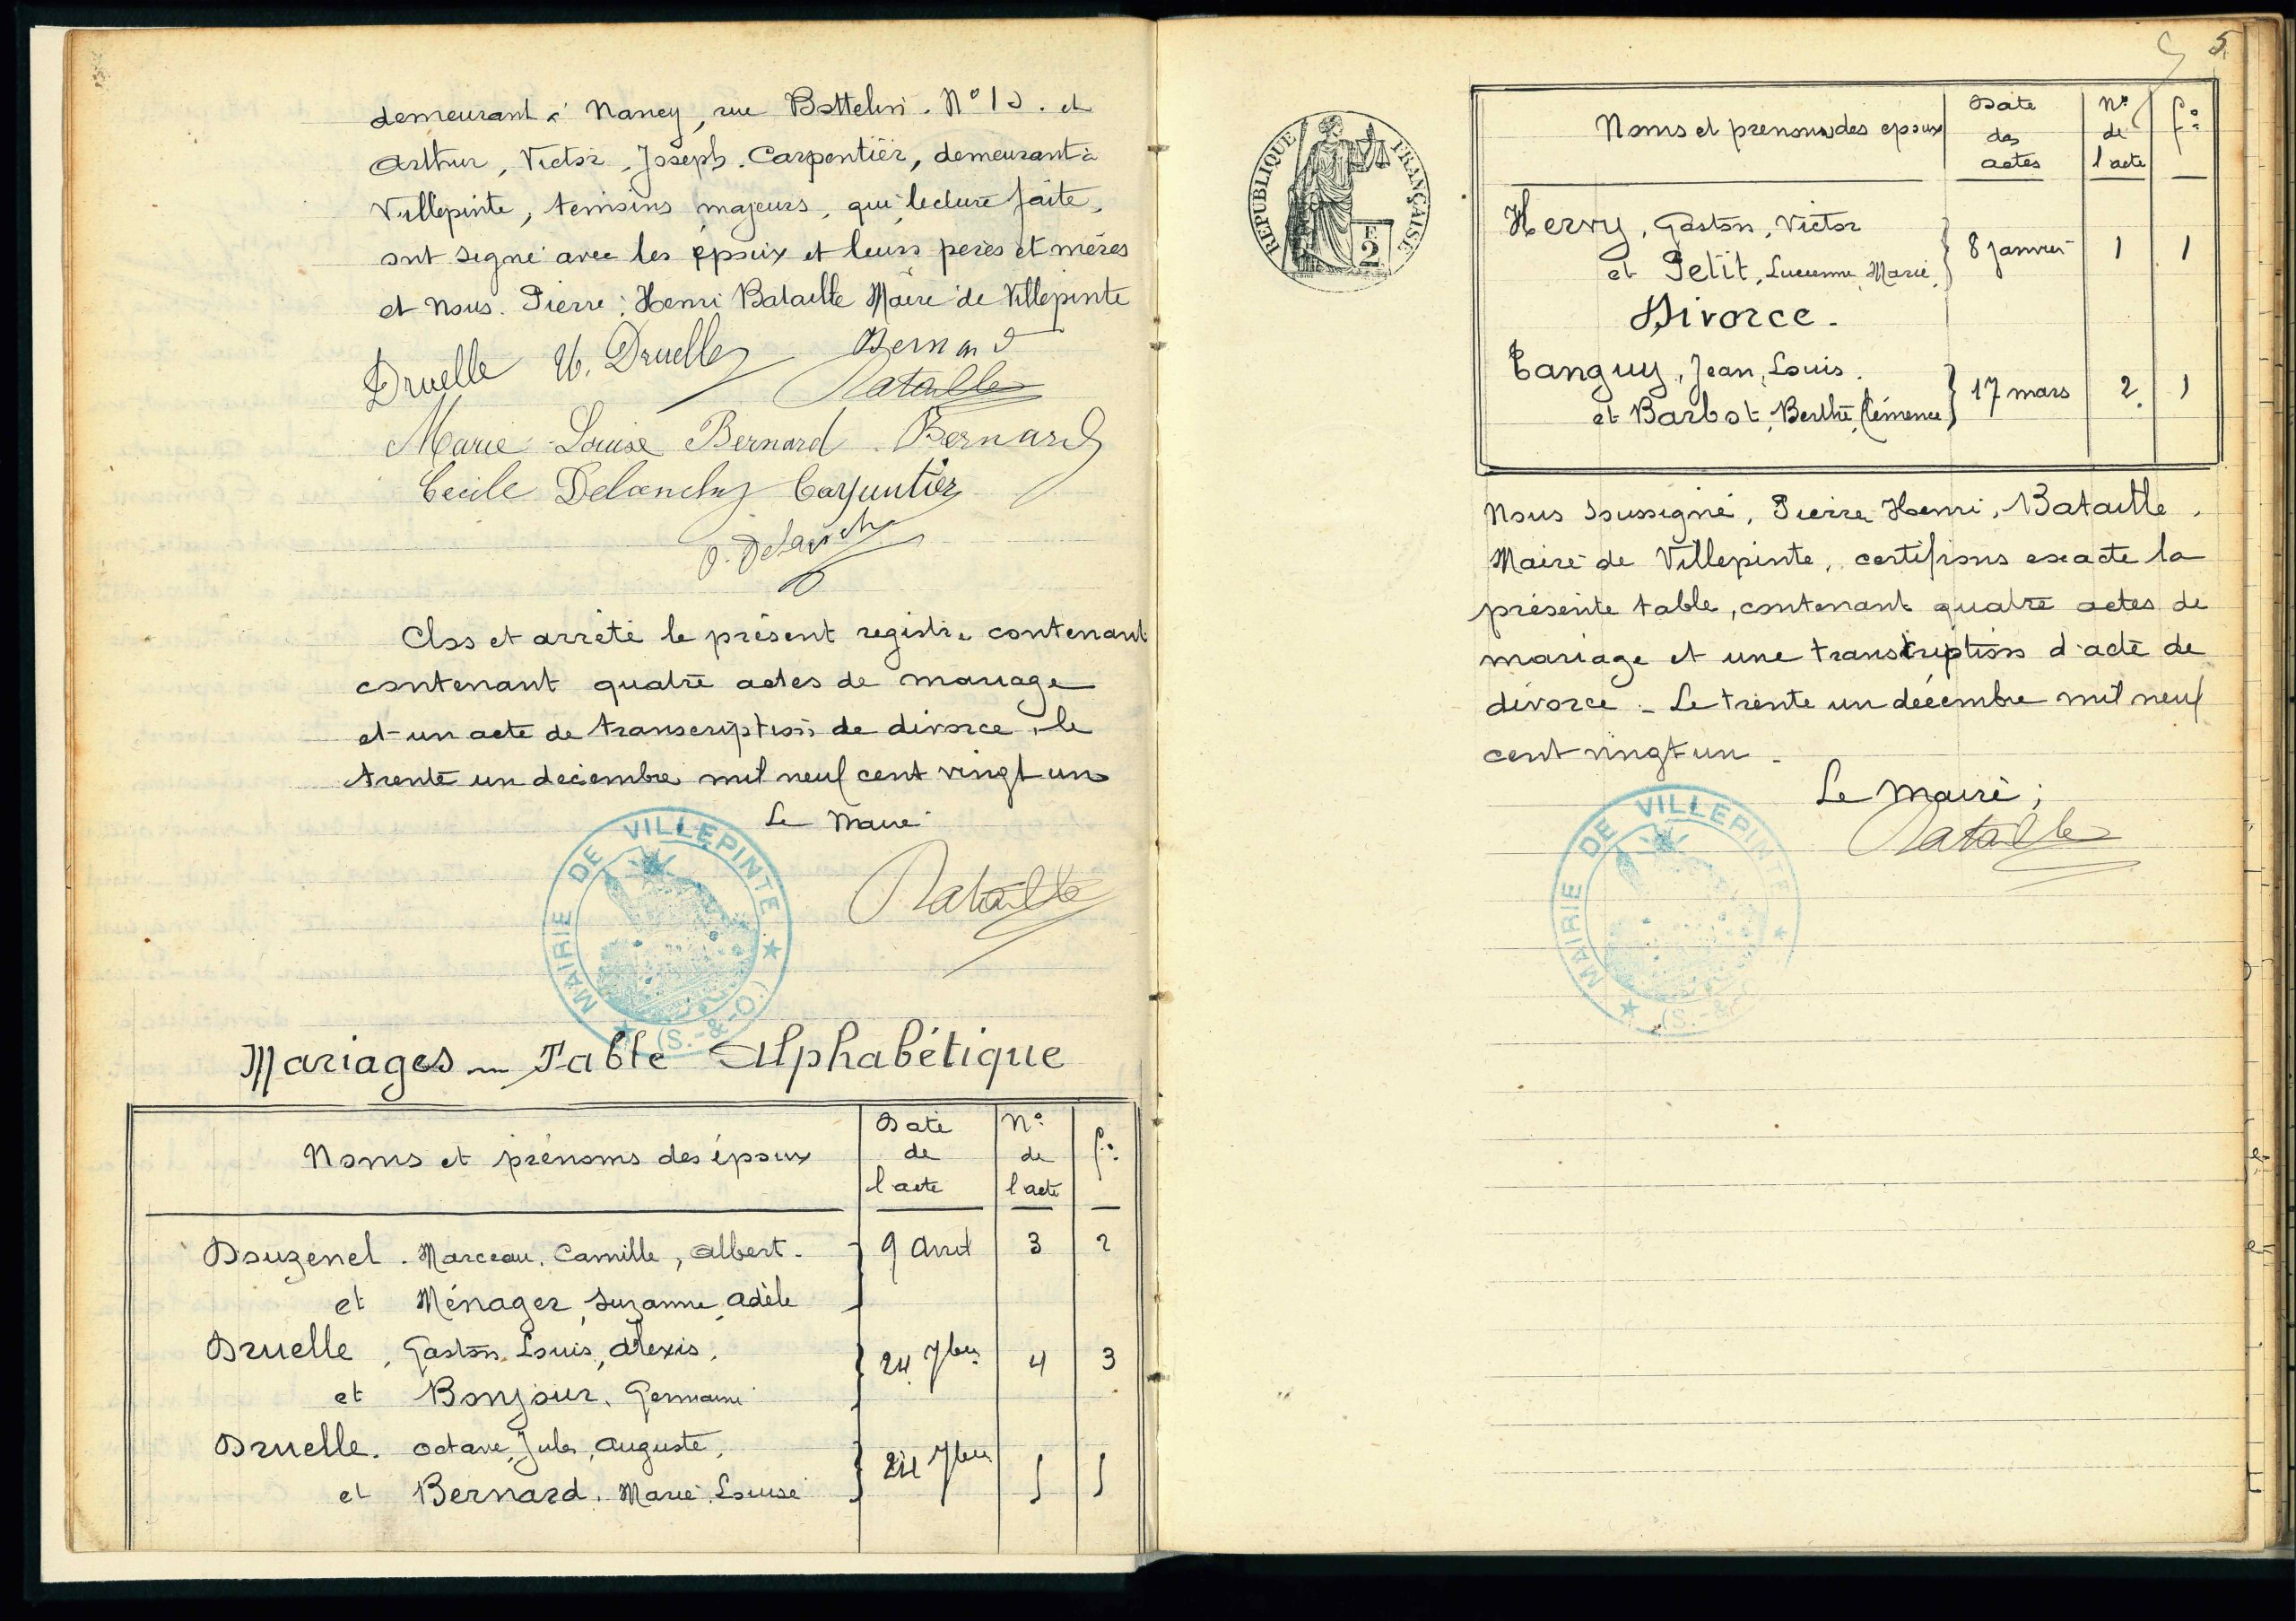 demeurant à Nancy, rue Bottelin. N° 10. et
Arthur, Victor, Joseph. Carpentier, demeurant à
Villepinte, temoins majeurs, qui, lecture faite,
ont signé avec les époux et leurs peres et mères
et nous. Pierre. Henri Bataille Maire de Villepinte
Druelle U. Druelle Bernard
Bataille
Marie-Louise Bernard Bernard
Cecile Delanchy Carpentier
O. Delanchy
Clos et arrêté le présent registre contenant
contenant quatre actes de mariage
et un acte de transcription de divorce, le
trente un decembre mil neuf cent vingt un
Le Maire
Bataille
MAIRIE DE VILLEPINTE (S.-&-O.)
Mariages — Table Alphabétique
Noms et prénoms des époux | Date de l'acte | N° de l'acte | f°
Douzenel. Marceau. Camille, Albert. | 9 Avril | 3 | 2
et Ménager, Suzanne, Adèle
Druelle, Gaston, Louis, Alexis, | 24 7bre | 4 | 3
et Bonjour. Germaine
Druelle. Octave, Jules, Auguste, | 24 7bre | 5 | 5
et Bernard. Marie. Louise
5
REPUBLIQUE FRANÇAISE
F
2
Noms et prenoms des epoux | Date des actes | N° de l'acte | f°
Hervy, Gaston, Victor | 8 janvier | 1 | 1
et Petit, Lucienne, Marie
Divorce.
Tanguy, Jean, Louis. | 17 mars | 2 | 1
et Barbot, Berthe, Clémence
Nous soussigné, Pierre Henri, Bataille.
Maire de Villepinte, certifions exacte la
présente table, contenant quatre actes de
mariage et une transcription d'acte de
divorce. Le trente un décembre mil neuf
cent vingt un.
Le Maire;
Bataille
MAIRIE DE VILLEPINTE (S.-&